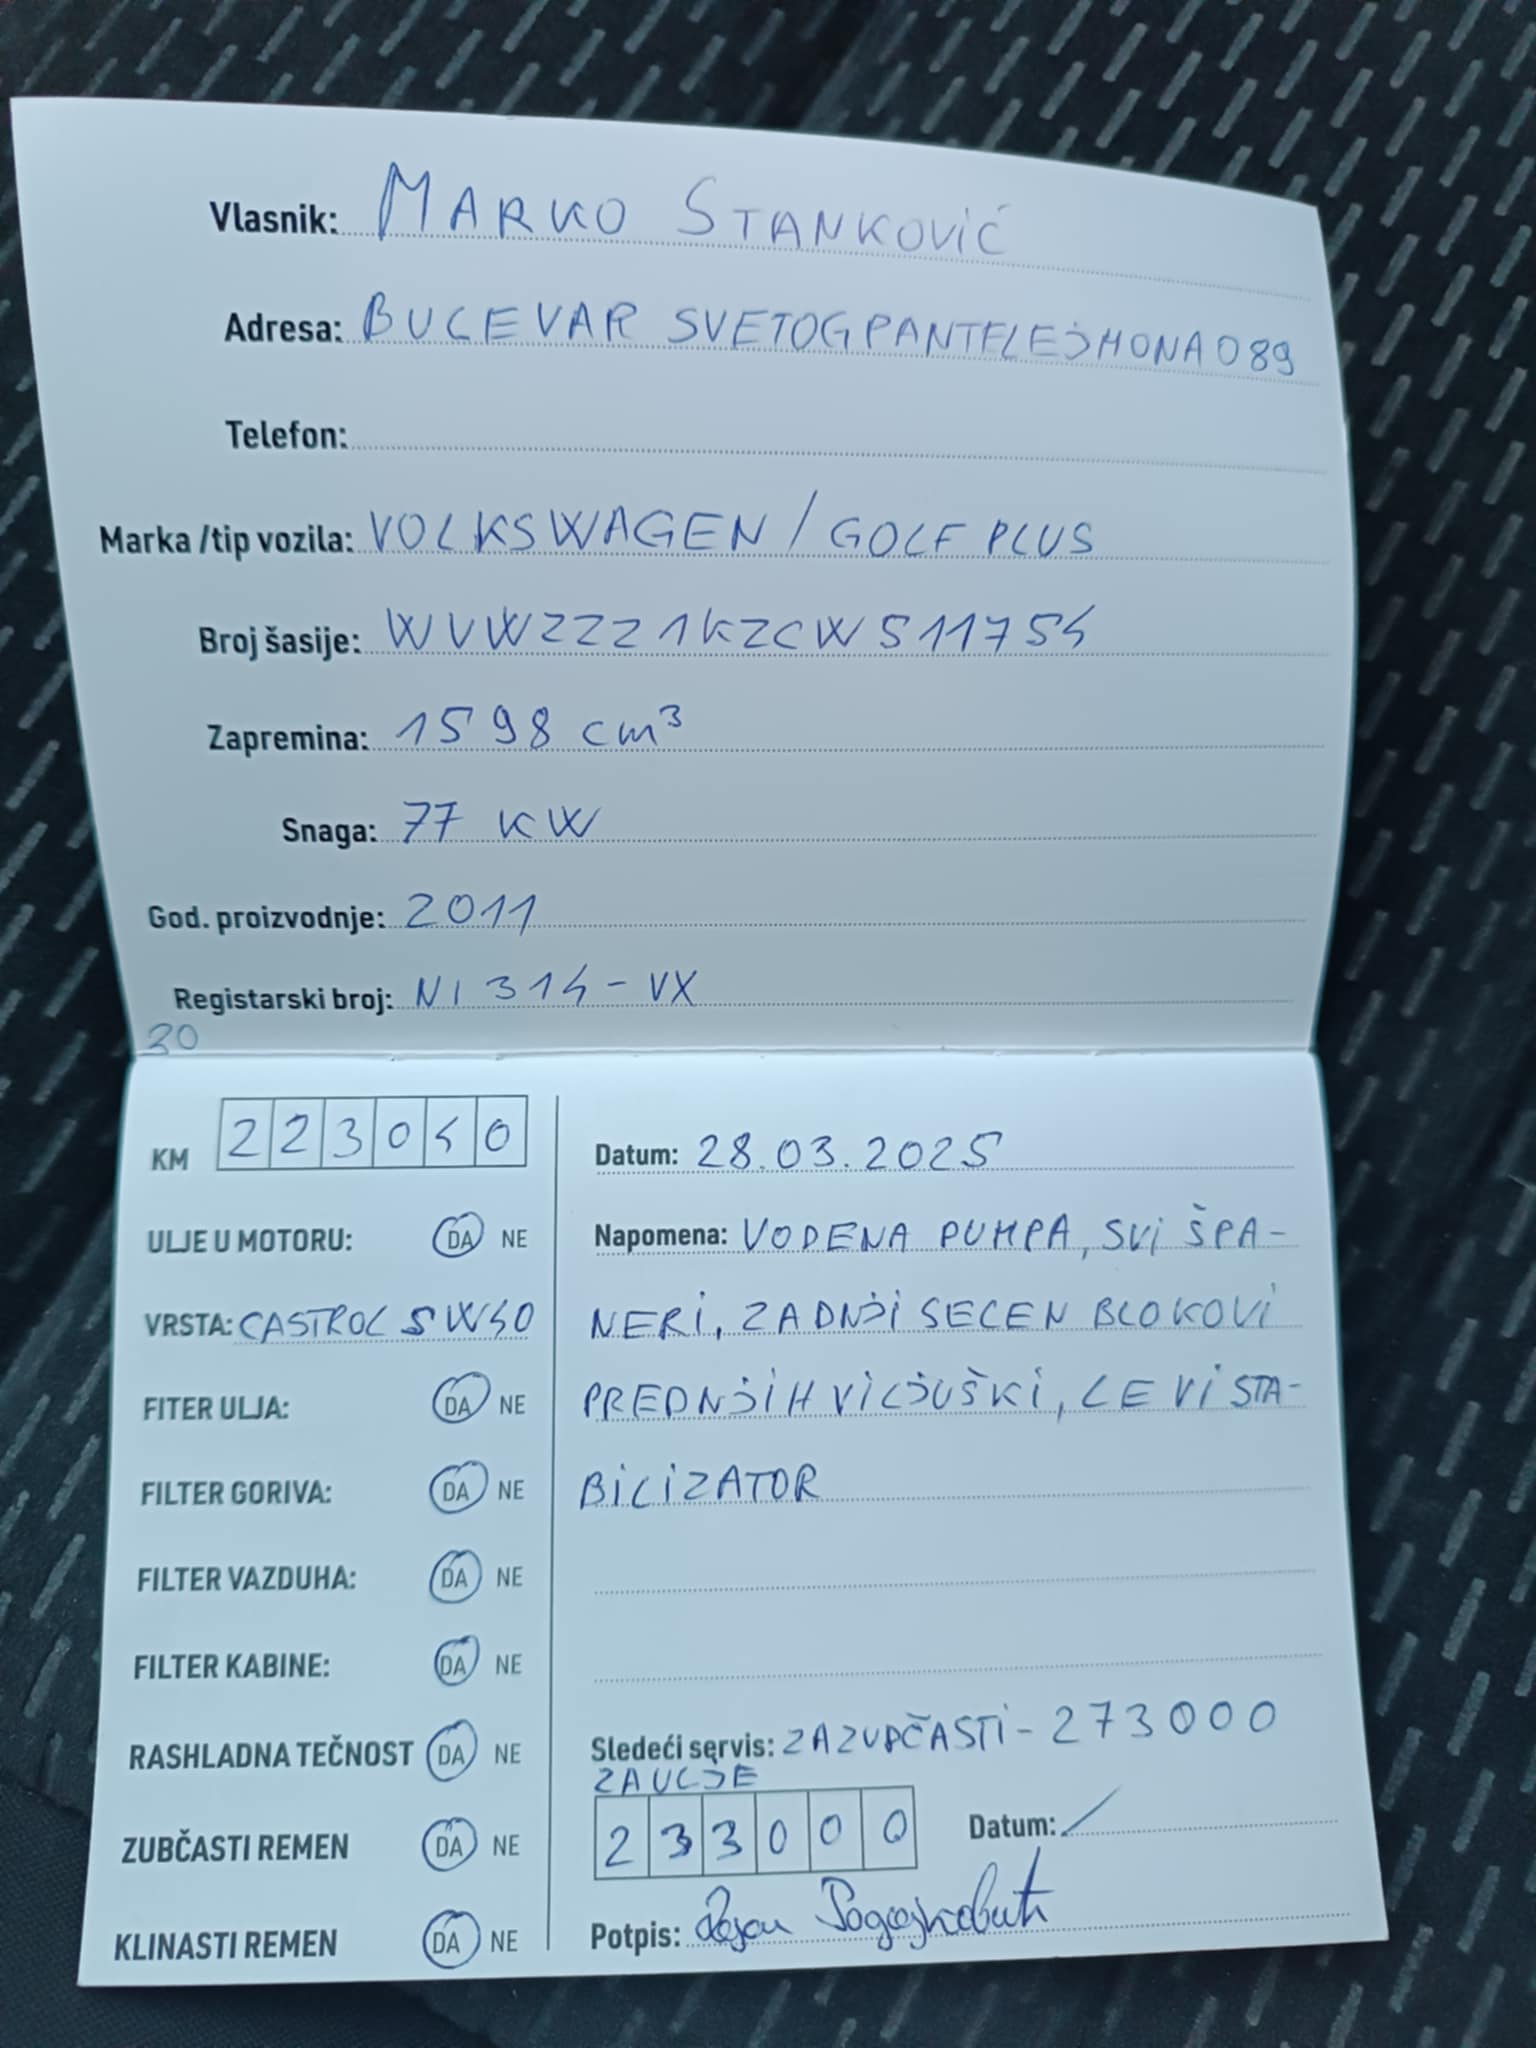 Vlasnik: MARKO STANKOVIĆ
Adresa: BULEVAR SVETOG PANTELEJMONA 089
Telefon:
Marka /tip vozila: VOLKSWAGEN / GOLF PLUS
Broj šasije: WVWZZZ1KZCW511754
Zapremina: 1598 cm³
Snaga: 77 KW
God. proizvodnje: 2011
Registarski broj: NI 314-VX
30
KM 223040
ULJE U MOTORU: DA NE
VRSTA: CASTROL 5W40
FITER ULJA: DA NE
FILTER GORIVA: DA NE
FILTER VAZDUHA: DA NE
FILTER KABINE: DA NE
RASHLADNA TEČNOST DA NE
ZUBČASTI REMEN DA NE
KLINASTI REMEN DA NE
Datum: 28.03.2025
Napomena: VODENA PUMPA, SVI ŠPA-
NERI, ZADNJI SELEN BLOKOVI
PREDNJIH VILJUŠKI, LEVI STA-
BILIZATOR
Sledeći servis: ZA ZUPČASTI - 273000
ZA ULJE
233000 Datum: /
Potpis: